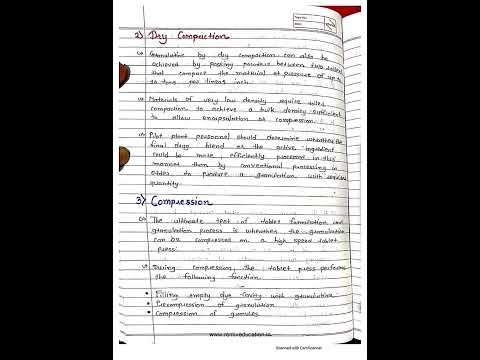 2) Dry Compaction
Granulation by dry compaction can also be
achieved by passing powders between two rollers
that compact the material at pressure of up to
10 tons per linear inch.
Materials of very low density require roller
compaction to achieve a bulk density sufficient
to allow encapsulation or compression.
Pilot plant personnel should determine whether the
final drug blend or the active ingredient
could be more efficiently processed in this
manner than by conventional processing in
order to produce a granulation with
quantity.
3) Compression
The ultimate test of tablet formulation and
granulation process is whether the granulation
can be compressed on a high speed tablet
press.
During compression, the tablet press performs
the following function.
• Filling empty dye cavity with granulation
• Precompression of granulation
• Compression of granules
Scanned with CamScanner